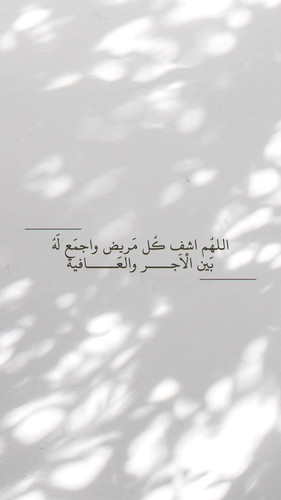 اللهُم اشفِ كُل مَريض واجمَع لَهُ
بَين الْأجـــر والعَـــافية